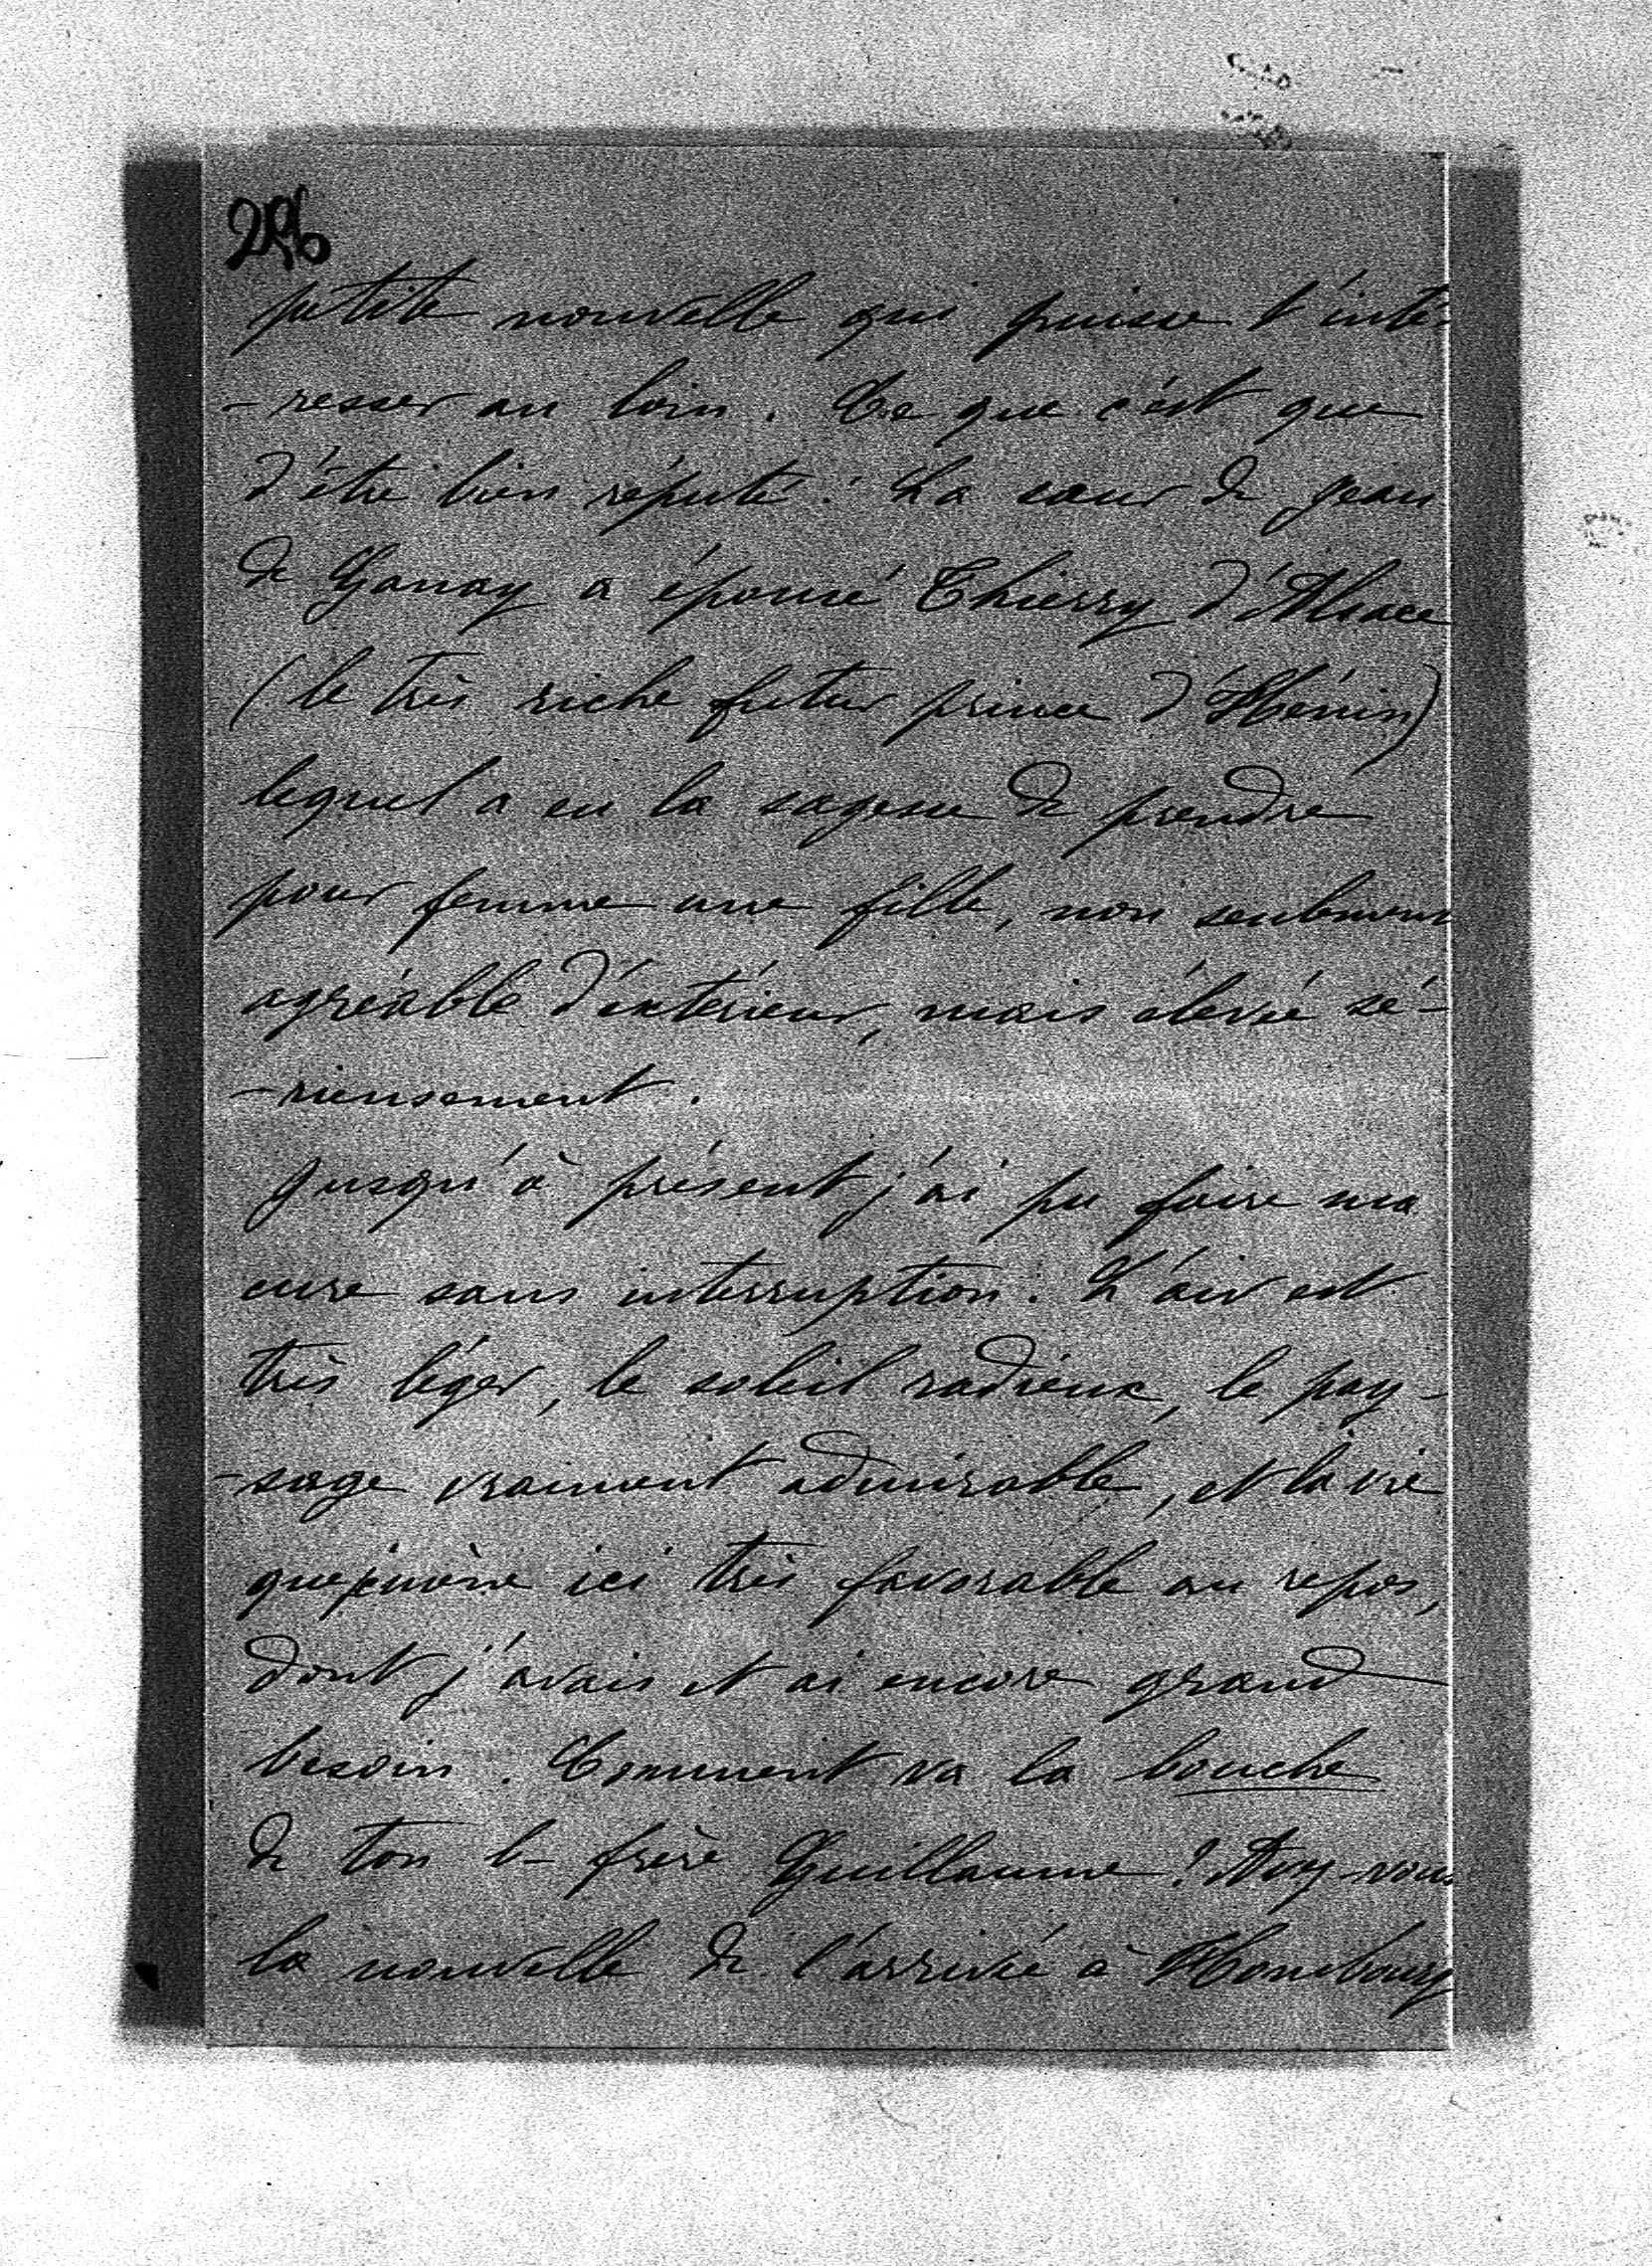 296
petite nouvelle qui puisse t'inté-
-resser au loin. Ce que c'est que
d'être bien réputé! La sœur de Jean
de Ganay a épousé Thierry d'Alsace
(le très riche futur prince d'Hénin)
lequel a eu la sagesse de prendre
pour femme une fille, non seulement
agréable d'extérieur, mais élevée sé-
-rieusement.
Jusqu'à présent j'ai pu faire ma
cure sans interruption. L'air est
très léger, le soleil radieux, le pay-
-sage vraiment admirable, et la vie
que j'y mène ici très favorable au repos,
dont j'avais et ai encore grand
besoin. Comment va la bouche
de ton b- frère Guillaume? Avez-vous
la nouvelle de l'arrivée à Hombourg